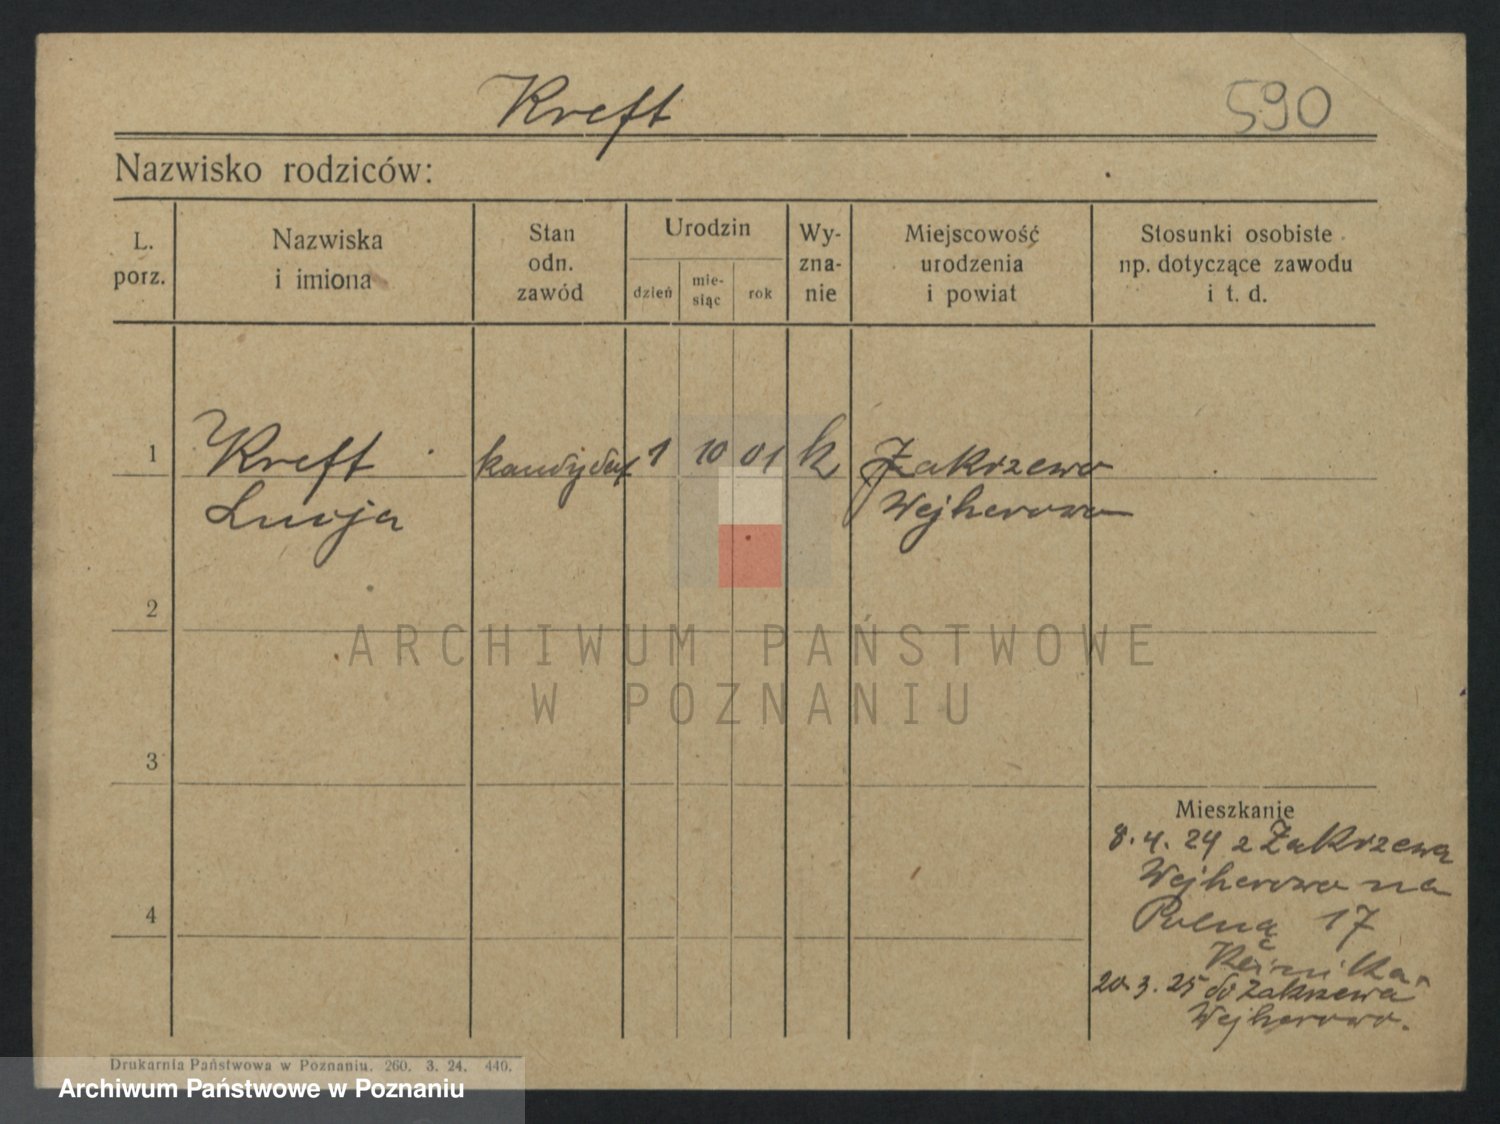 Kreft
590
Nazwisko rodziców:
L. porz.
Nazwiska i imiona
Stan odn. zawód
Urodzin
dzień
mie- siąc
rok
Wy- zna- nie
Miejscowość urodzenia i powiat
Stosunki osobiste np. dotyczące zawodu i t. d.
1 Kreft kandydat 1 10 01 k Zakrzewo
Lucja Wejherowo
2
3
4
Mieszkanie
8.4.24 z Zakrzewa
Wejherowo na
Polną 17
20.3.25 do Zakrzewa
Wejherowo.
Drukarnia Państwowa w Poznaniu. 260. 3. 24. 440.
ARCHIWUM PAŃSTWOWE
W POZNANIU
Archiwum Państwowe w Poznaniu